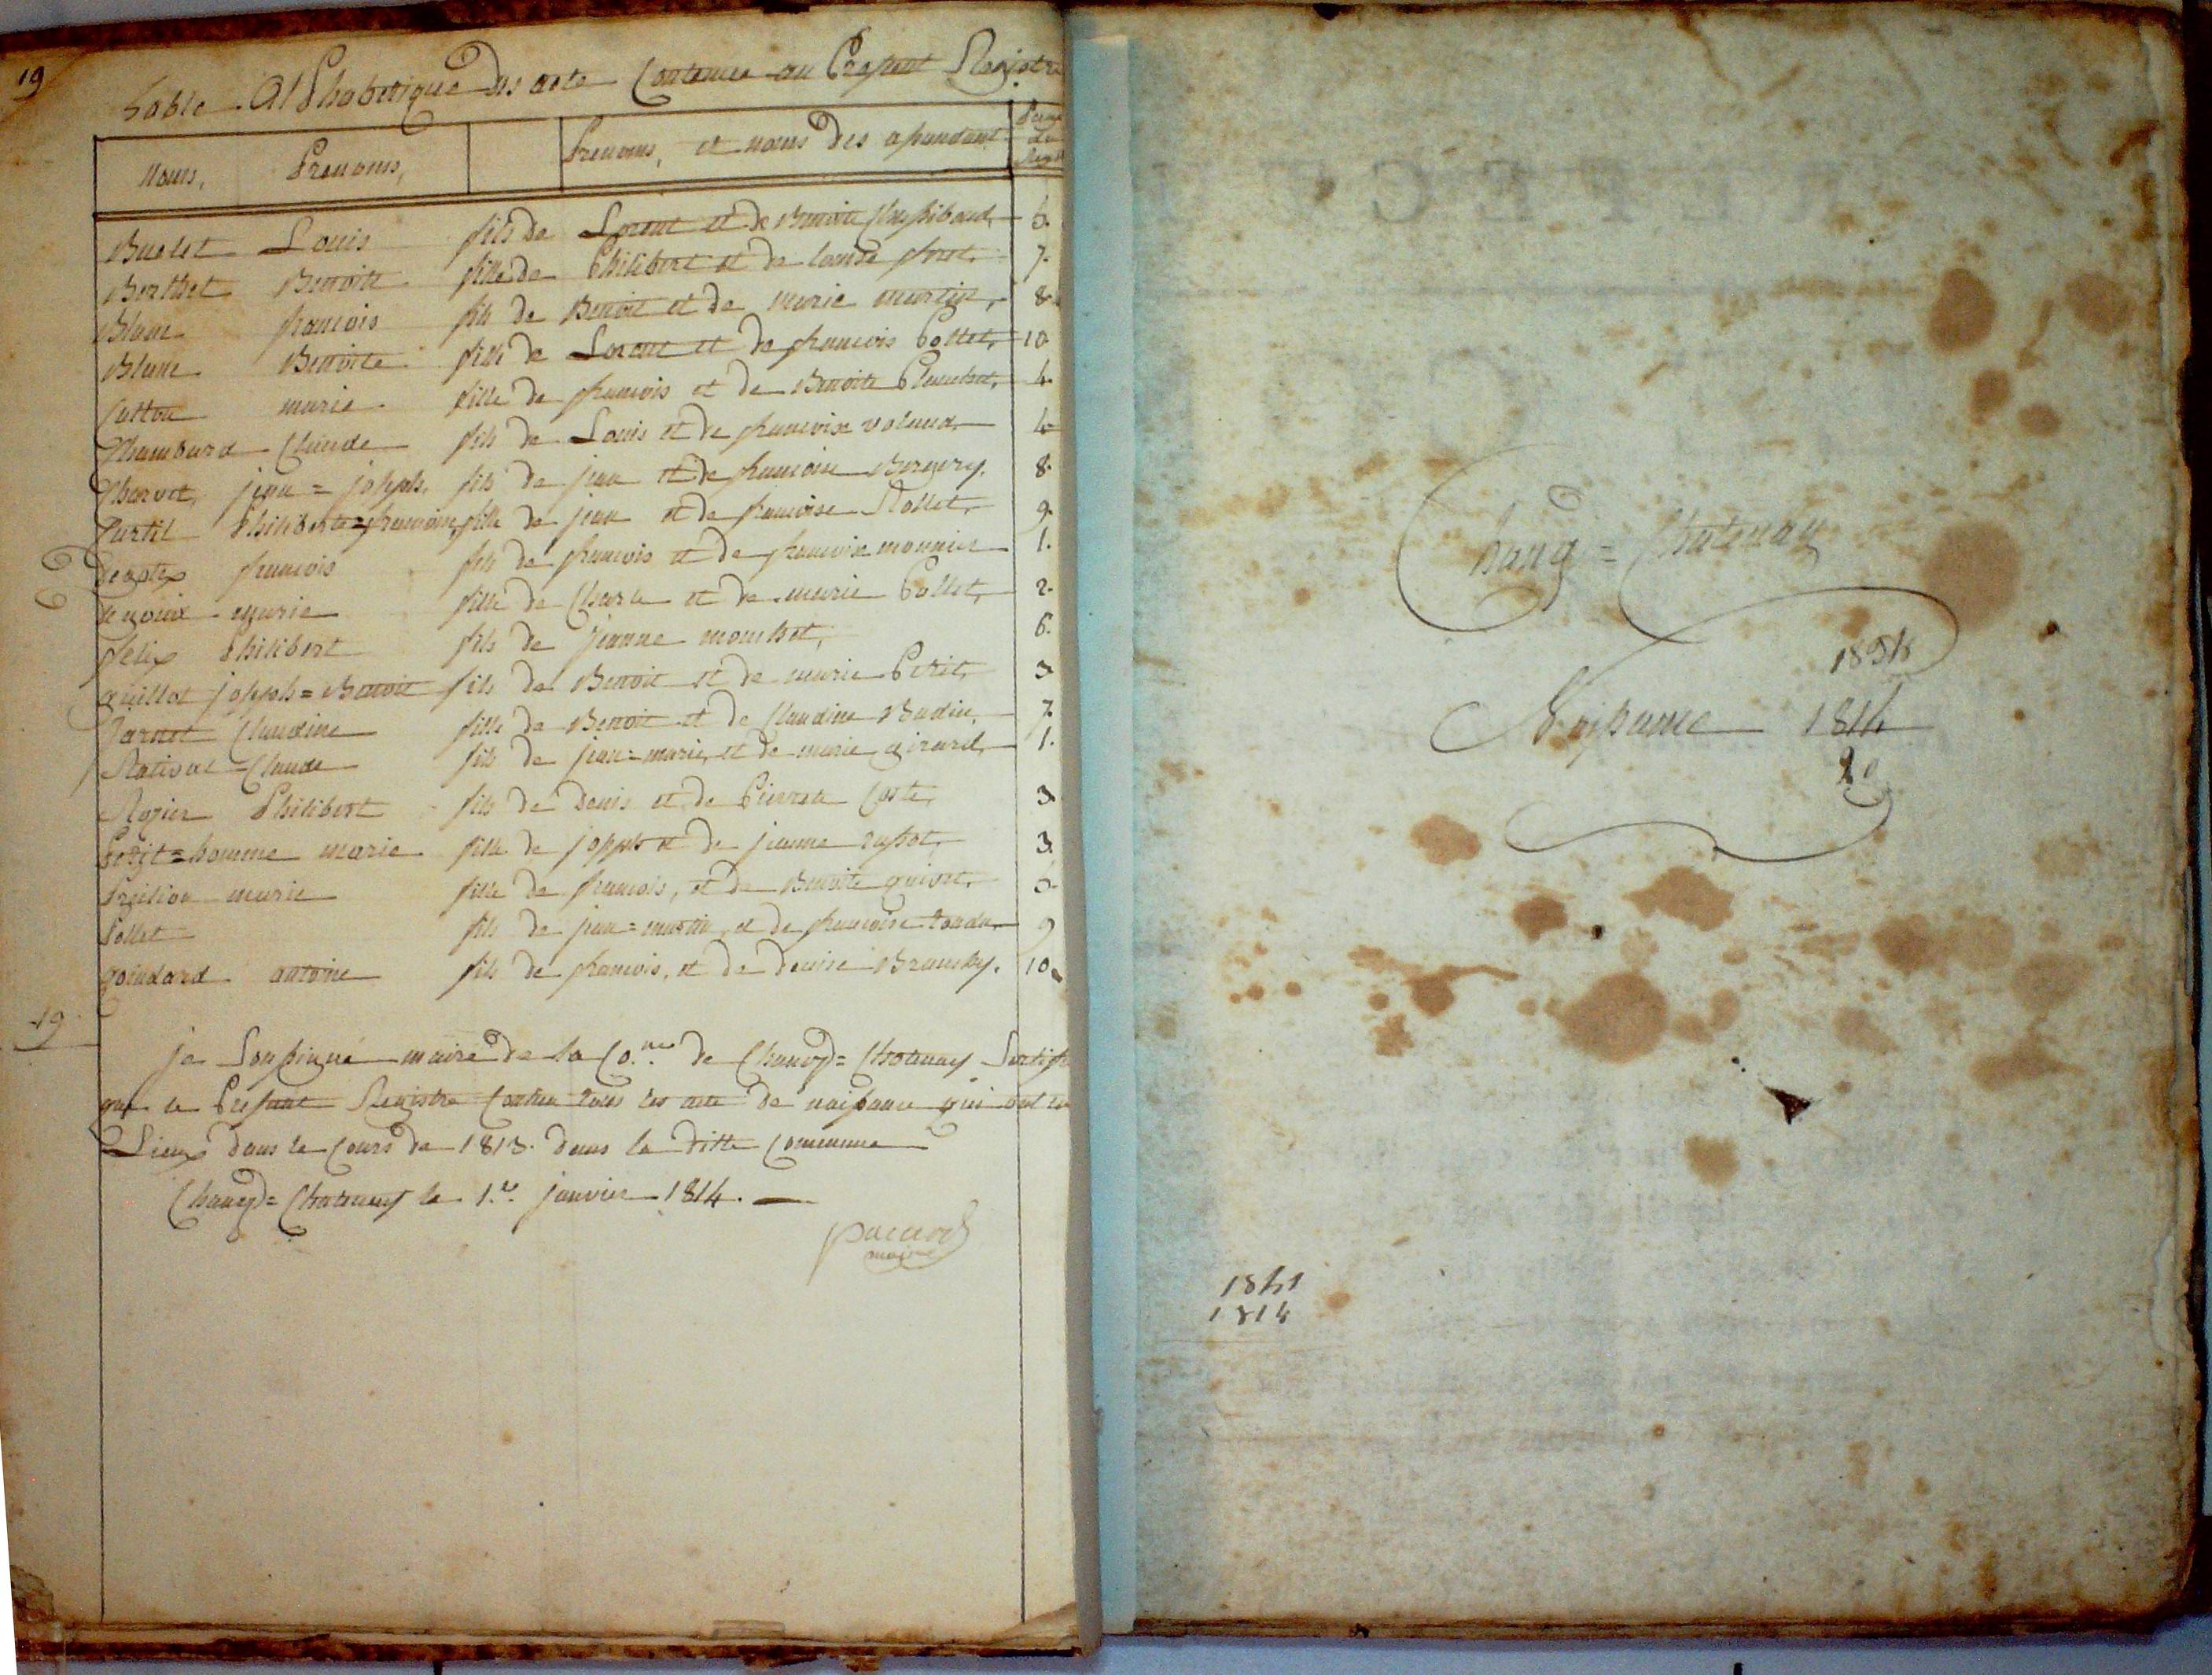 19
Table Alphabetique des acte Contenue au Present Registre
Noms, Prenoms, Prenoms, et noms des
Buolet Louis fils de Lorent et de Benoite 5.
Berthet Benoitte fille de Philibert et de 7.
Blanc francois fils de Benoit et de marie martin, 8.
Blanc Benoite fille de Lorent et de francois Collet, 10
Cutton marie fille de francois et de Benoite Planchet, 4.
Chambard Claude fils de Louis et de francoise voland 4
Charvet jean = joseph fils de jean et de francoise Bergery. 8.
Curtil Philiberte = francoise fille de jean et de francoise Rollet, 9.
francois fils de francois et de francoise monnier 1.
marie fille de Charle et de marie Collet, 2.
felix Philibert fils de jeanne mouchet, 6.
guillot joseph = Benoit fils de Benoit et de marie Petit, 3
Claudine fille de Benoit et de Claudine Badin, 7.
Claude fils de jean = marie, et de marie girard, 1.
Rozier Philibert fils de Denis et de Pierrete Coste, 3
Petit = homme marie fille de joseph et de jeanne 3.
marie fille de francois, et de Benoite
Pollet fils de jean = martin, et de francoise tondu 9
goindard antoine fils de francois, et de denise Branchy. 10
19
je Soussigné maire de la Co.ne de Chanay = Chatenay Certifie
que le Present Registre Contien tous les acte de naissance qui ont eu
Lieux dans le Cours de 1813. dans la ditte Commune
Chanay = Chatenay le 1.er janvier 1814.
maire
= Chatenay
1814
Naissance 1814
1841
1814